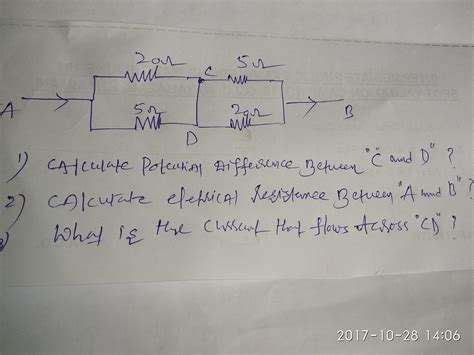 20Ω 5Ω
C
A
5Ω 20Ω B
D
1) Calculate Potential Difference Between "C and D" ?
2) Calculate eletrical Resistance Between "A and B" ?
3) What is the current that flows Across "CD" ?
2017-10-28 14:06